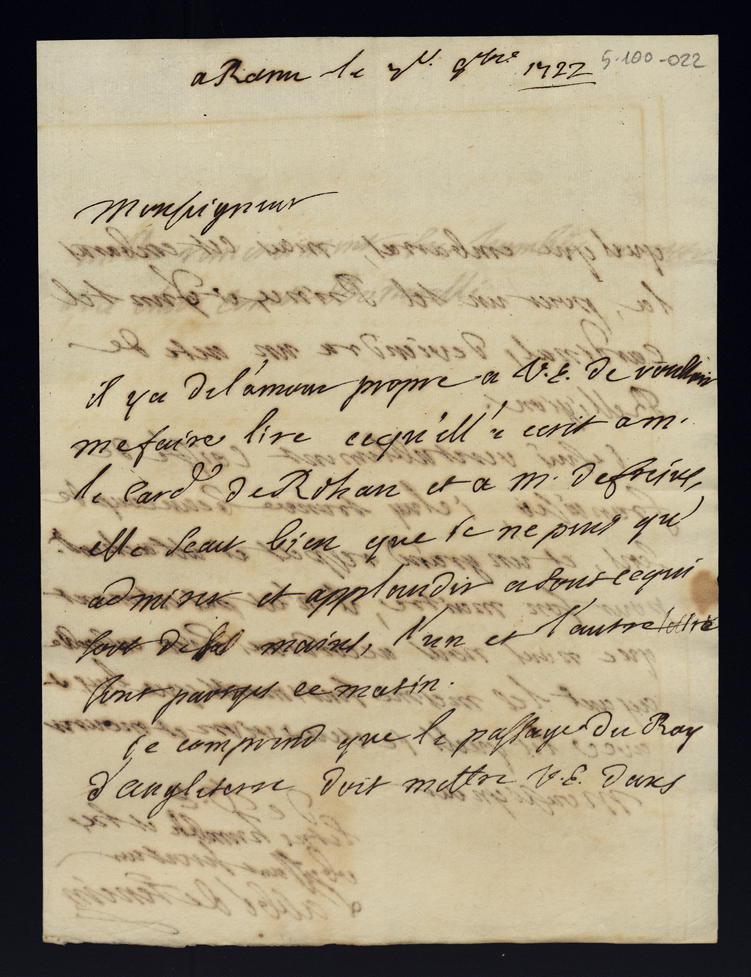 a Rome le 7e. 9bre 1722
5-100-022
Monseigneur
il y a de l'amour propre a V.E. de vouloir
me faire lire ce qu'ell'a ecrit a m.
le Card. de Rohan et a m. de frejus,
elle scait bien que je ne puis qu'
admirer et applaudir a tout ce qui
sort de ses mains, l'un et l'autre lettre
sont parties ce matin.
je comprend que le passage du Roy
d'angleterre doit mettre V.E. dans